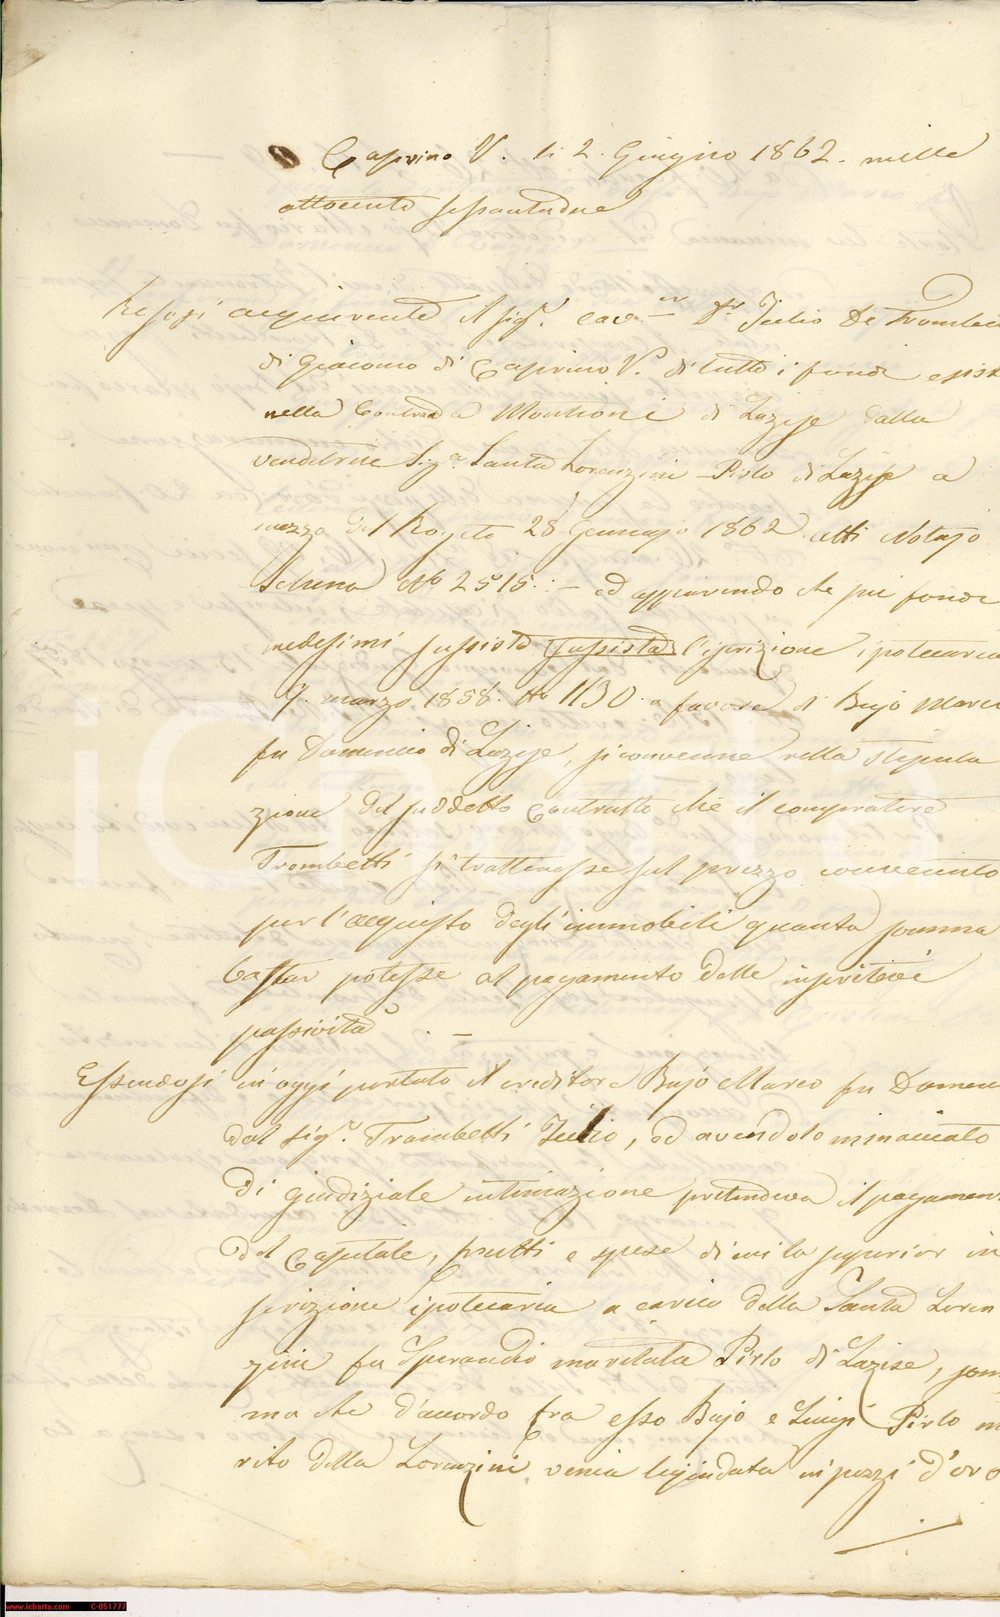 Caprino V. li 2. Giugno 1862. mille
ottocento sessantadue
Resosi acquirente il Sig.r Cav.er D.r Julio De Trombet
di Giacomo di Caprino V.e di tutti i fondi esist
nella Contrada Montioni di Lazise dalla
venditrice Sig.a Santa Lorenzini - Pirlo di Lazise a
mezzo del Rogito 28 Gennajo 1862 Atti Notajo
Schena No 2515. :- ed apparendo che sui fondi
medesimi sussista sussista l'iscrizione ipotecaria
9. marzo 1858. No 1130. a favore di Bajo Marco
fu Domenico di Lazise, si convenne nella stipula
zione del suddetto Contratto che il compratore
Trombetti si trattenesse sul prezzo convenuto
per l'acquisto degli immobili quanta somma
bastar potesse al pagamento delle inscritevi
passività. -
Essendosi in oggi portato il creditore Bajo Marco fu Domen
dal Sig.r Trombetti Julio, ed avendolo minacciato
di giudiziale intimazione pretendeva il pagamen
del Capitale, frutti e spese di cui la superior in
scrizione ipotecaria a carico della Santa Loren
zini fu Sperandio maritata Pirlo di Lazise, som
ma che d'accordo fra esso Bajo e Luigi Pirlo ma
rito della Lorenzini venia liquidata in pezzi d'oro
iCharta
www.icharta.com C-051777